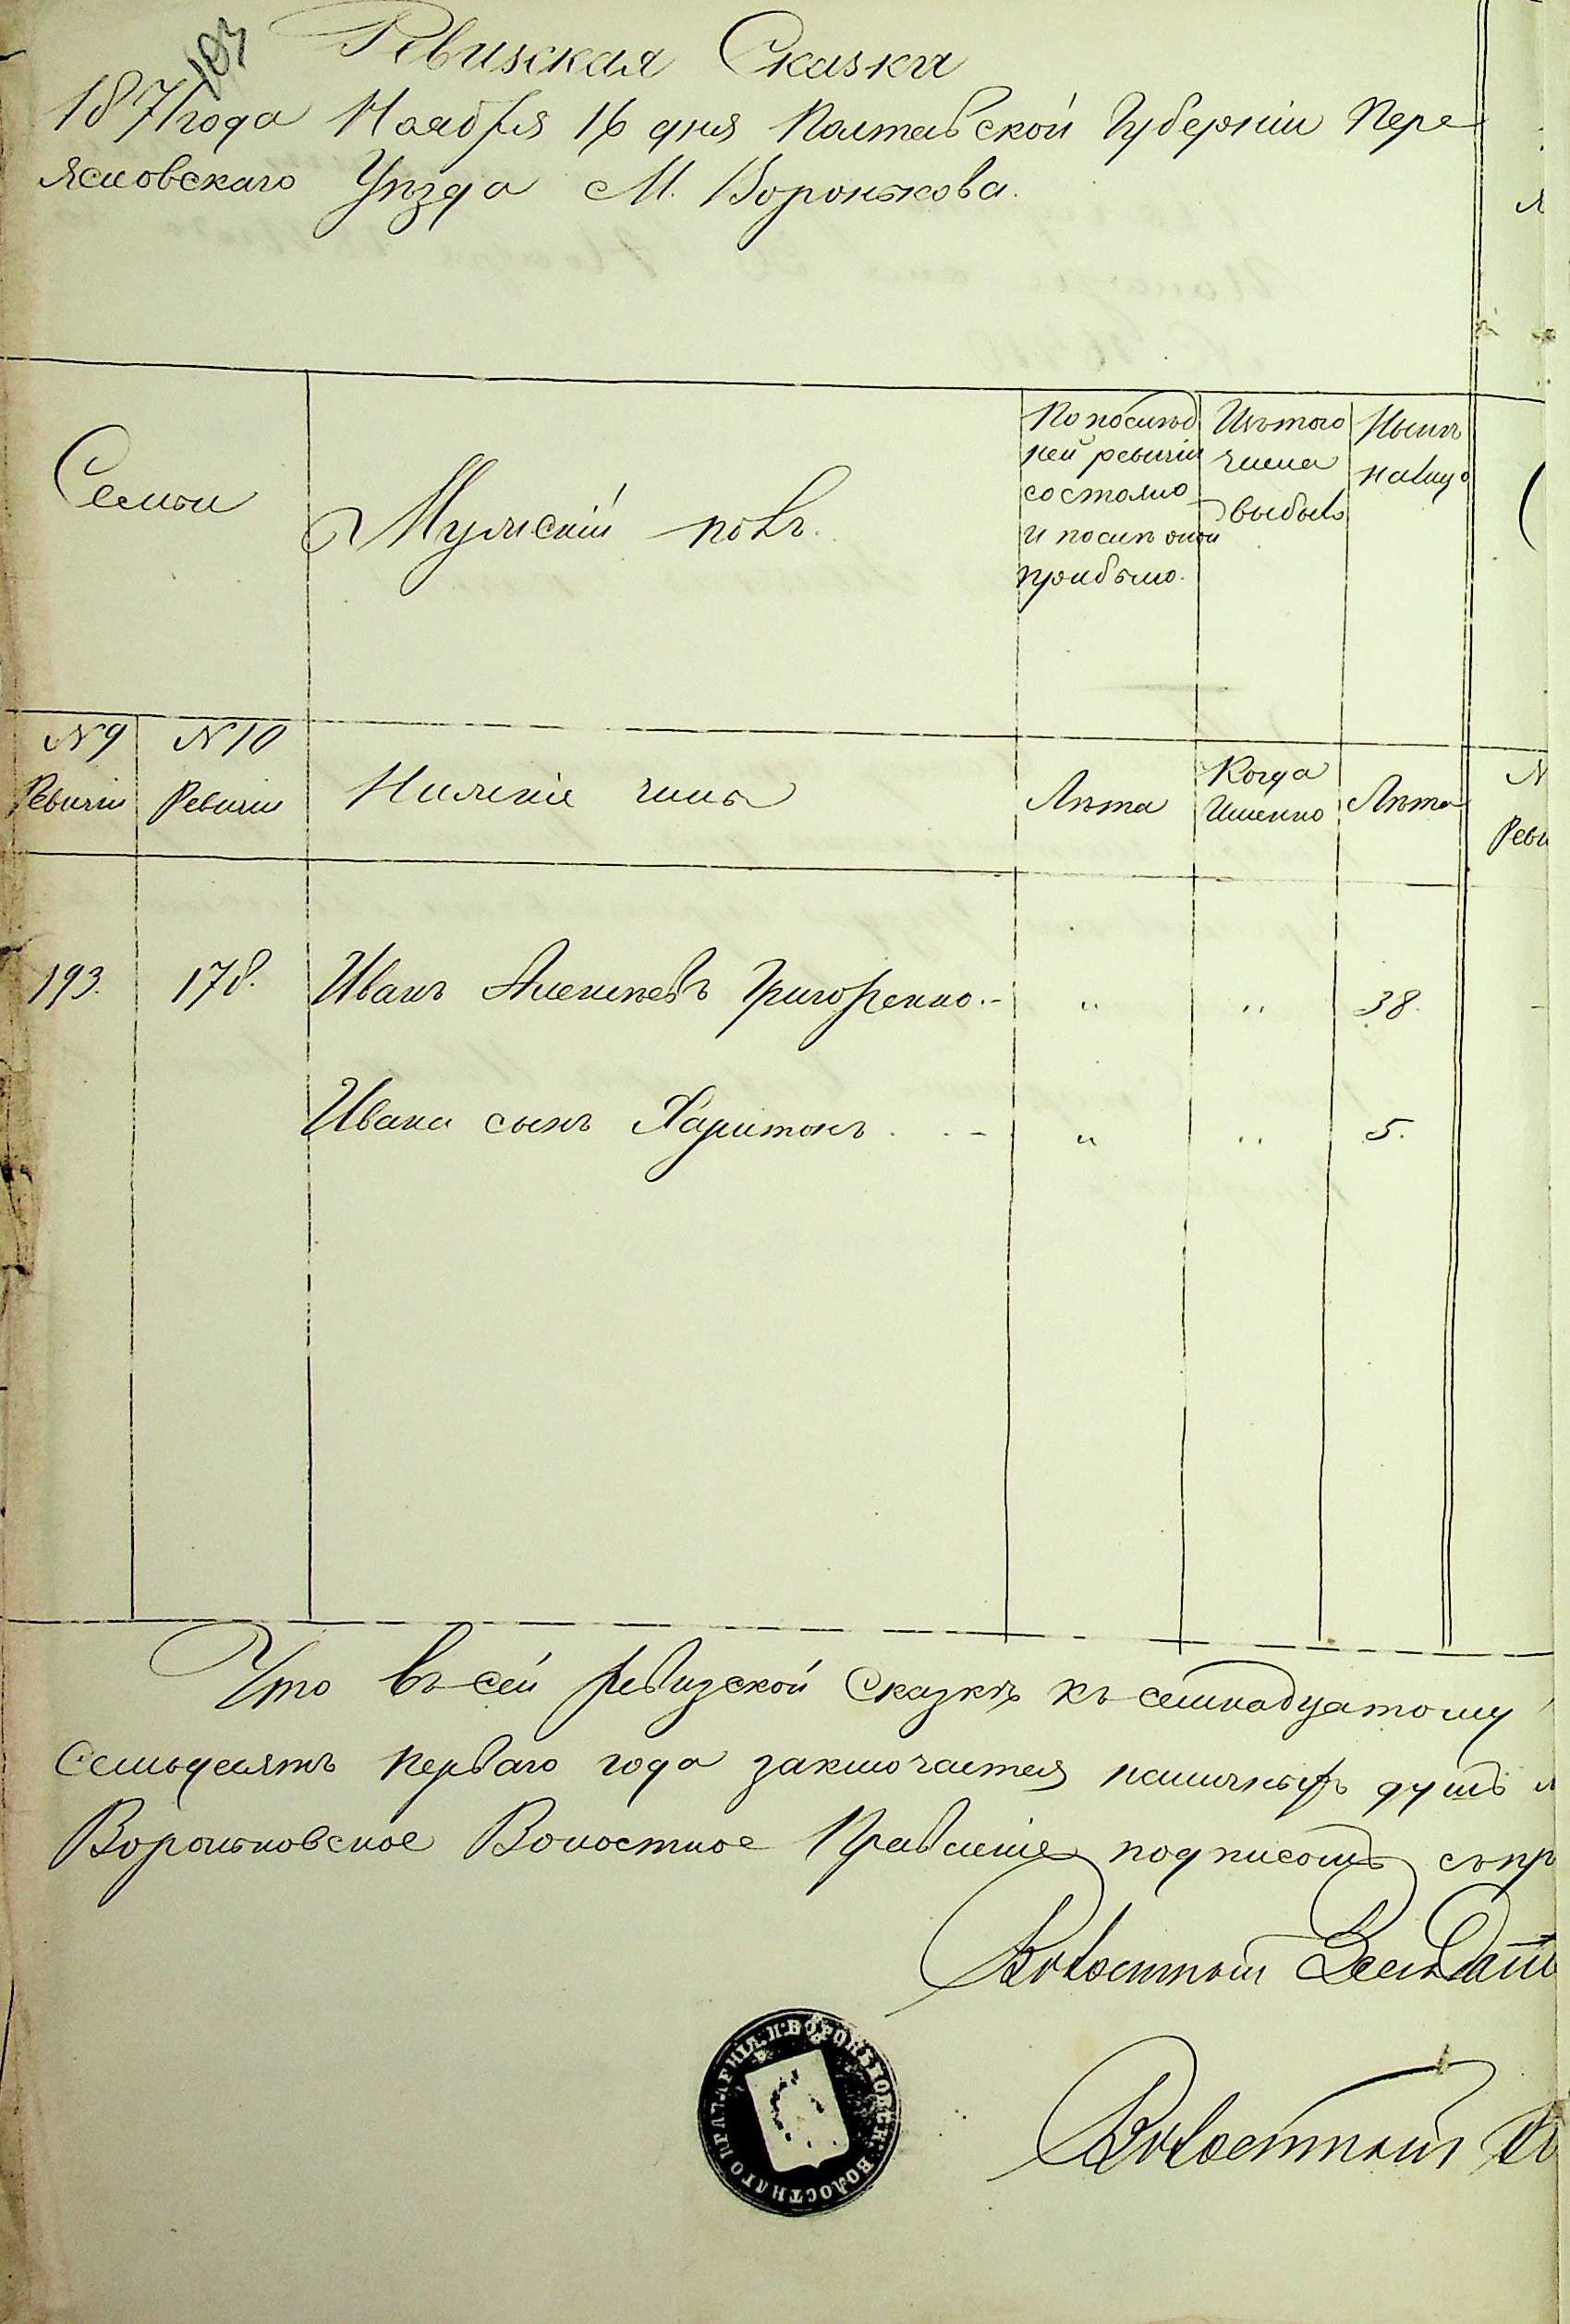 103
Ревизская Сказка
1871 года Ноября 16 дня Полтавской Губерніи Пере
яславскаго Уѣзда М. Воронькова.
Семьи
Мужскій полъ.
По послѣд
ней ревизіи
состояло
и послѣ оной
прибыло.
Изъ того
числа
выбыло
Нынѣ
на лицо
№ 9
Ревизіи
№ 10
Ревизіи
Нижніе чины
Лѣта
Когда
Именно
Лѣта
193. 178. Иванъ Алексѣевъ Григоренко. - " " 38.
Ивана сынъ Харитонъ . . - " " 5.
Что въ сей ревизской сказкѣ къ семнадцатому
семьдесятъ перваго года заключается наличныхъ душъ
Вороньковское Волостное Правленіе подписомъ съ пр
Волостной
Волостной
ВОРОНЬКОВСК. ВОЛОСТНАГО ПРАВЛЕНІЯ